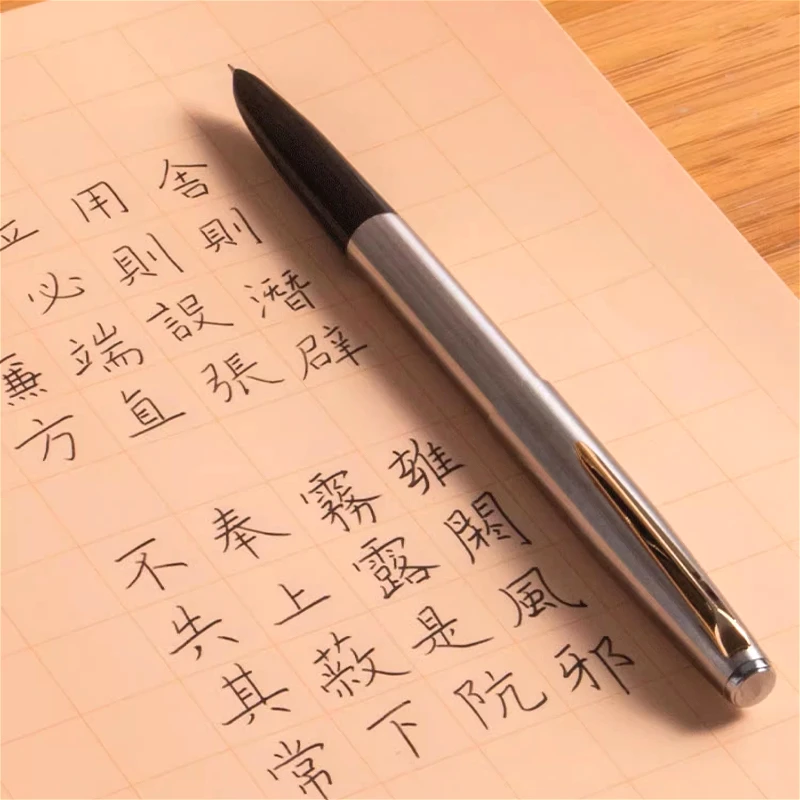 舍則潛辟 雍閼風邪
用則設張 霧露是阬
立必端直 奉上蔽下
廉方 不失其常